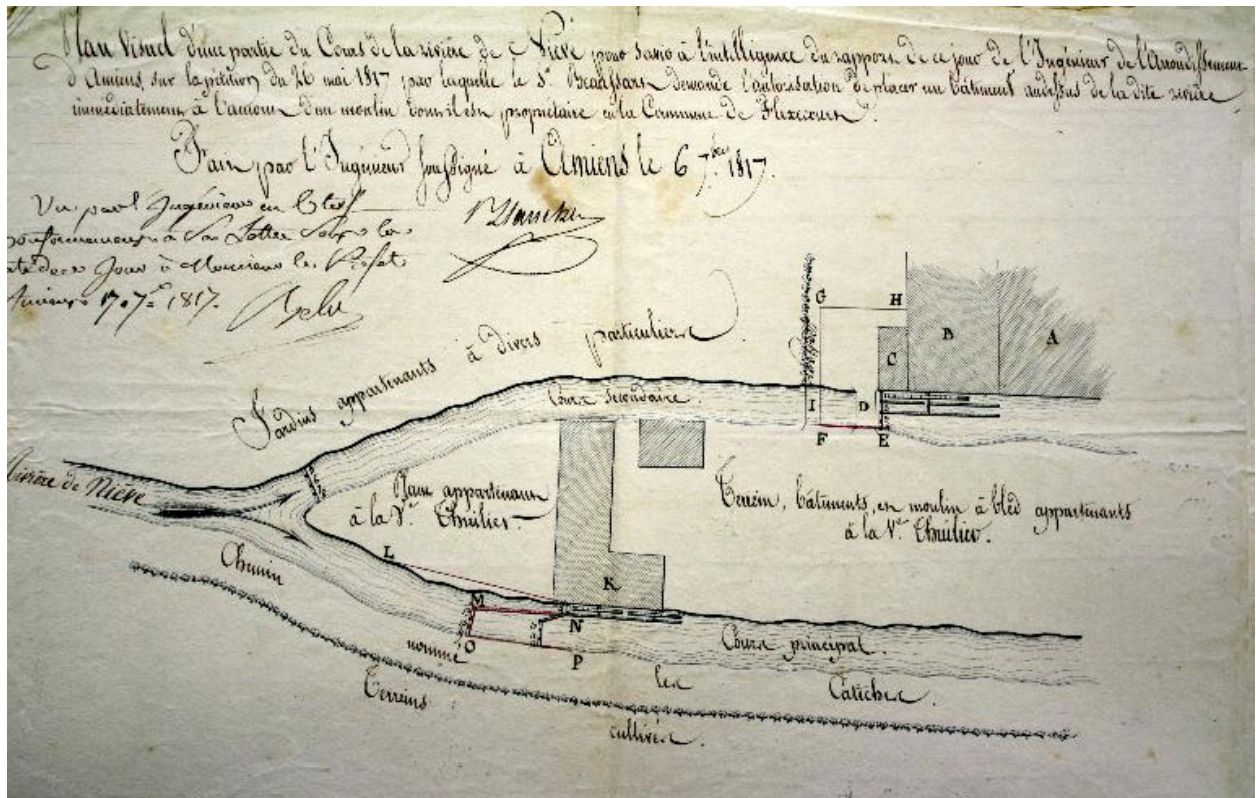 Plan Visuel d'une partie du Cours de la rivière de Niève pour servir à l'intelligence du rapport de ce jour de l'Ingénieur de l'Arrondissement
d'Amiens, sur la pétition du 26 mai 1817 par laquelle le Sr. demande l'autorisation de placer un bâtiment audessus de la dite rivière
immédiatement à l'amont d'un moulin dont il est propriétaire en la Commune de
Fait par l'Ingénieur soussigné à Amiens le 6 7.bre 1817.
Vu par l'Ingénieur en Chef
conformément à Sa Lettre
date de ce Jour à Monsieur le Préfet
Amiens 1817.
Jardins appartenants à divers particuliers
G H
B A
C
Cours secondaire.
I D
F E
Rivière de Niève
Place appartenant
à la Ve. Thuilier
Terrein, bâtiments, et moulin à bled appartenants
à la Ve. Thuilier.
L
K
M
N
O
P
Chemin
nommé
les
Catiches
Cours principal.
Terreins
cultivés.